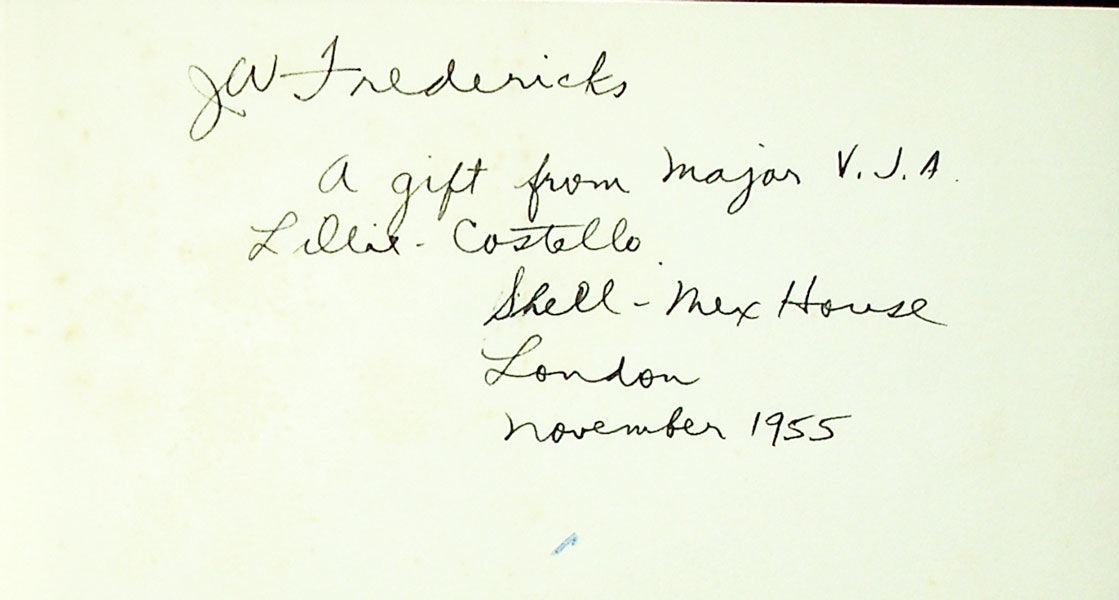 JW Fredericks
A gift from Major V.J.A.
Lillie-Costello
Shell-Mex House
London
November 1955